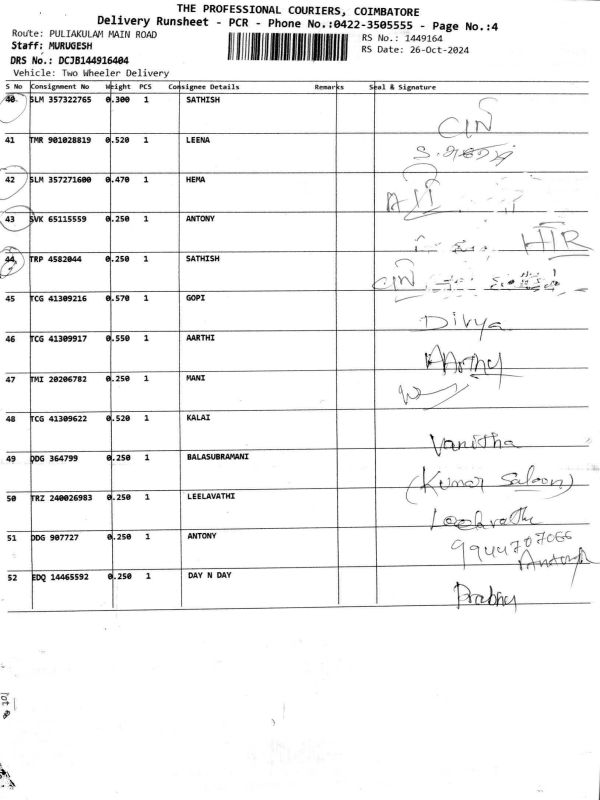 THE PROFESSIONAL COURIERS, COIMBATORE
Delivery Runsheet - PCR - Phone No.:0422-3505555 - Page No.:4
Route: PULIAKULAM MAIN ROAD
RS No.: 1449164
Staff: MURUGESH
RS Date: 26-Oct-2024
DRS No.: DCJB144916404
Vehicle: Two Wheeler Delivery
S No Consignment No Weight PCS Consignee Details Remarks Seal & Signature
40 SLM 357322765 0.300 1 SATHISH
41 TMR 901028819 0.520 1 LEENA
42 SLM 357271600 0.470 1 HEMA
43 SVK 65115559 0.250 1 ANTONY
44 TRP 4582044 0.250 1 SATHISH
45 TCG 41309216 0.570 1 GOPI
Divya
46 TCG 41309917 0.550 1 AARTHI
47 TMI 20206782 0.250 1 MANI
48 TCG 41309622 0.520 1 KALAI
Vanitha
49 DDG 364799 0.250 1 BALASUBRAMANI
(Kumar Saloon)
50 TRZ 240026983 0.250 1 LEELAVATHI
51 DDG 907727 0.250 1 ANTONY
Antony
52 EDQ 14465592 0.250 1 DAY N DAY
Prabhu